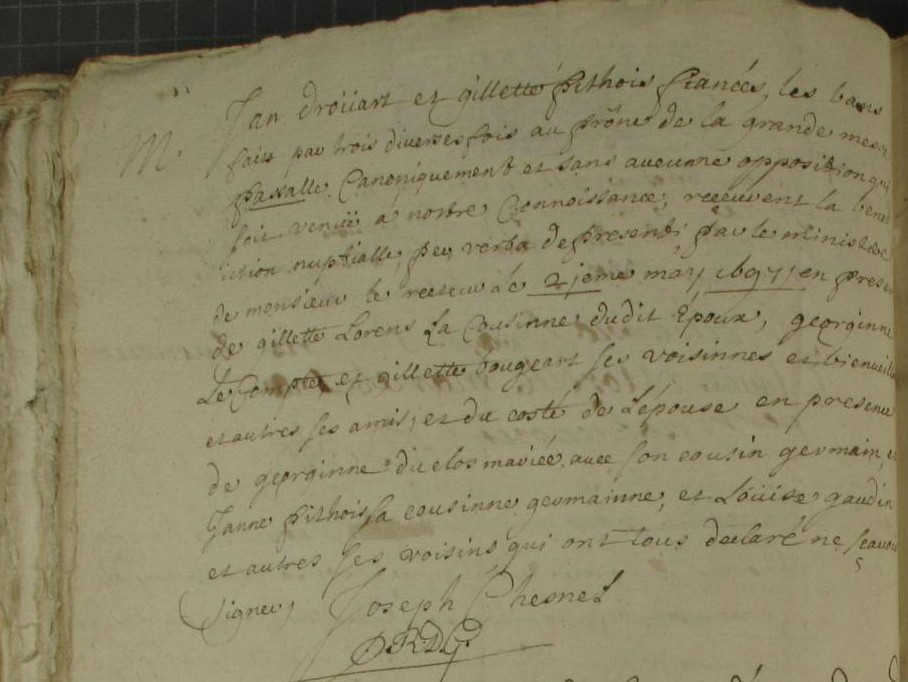 M. Jan droüart et gillette pithois fiancés, les bans
faits par trois diverses fois au prône de la grande messe
passalle Canoniquement et sans aucunne opposition qui
soit venuë a nostre Connoissance, reçeuvent la bene
iction nuptialle, per verba de presenti, par le ministere
de monsieur le recteur le 21jeme may 1697, en presen
de gillette Lorens La Cousinne dudit Epoux, georginne
Le Comptes et gillette bougeart ses voisinnes et bienveill
et autres ses amis, et du costé de L'épouse en presence
de georginne duclos mariée avec son cousin germain, et
Janne pithois sa cousinne germainne, et Loüise gaudin
et autres ses voisins qui ont tous declaré ne sçauoir
Signer, Joseph Chesnel
P.R.D.G.